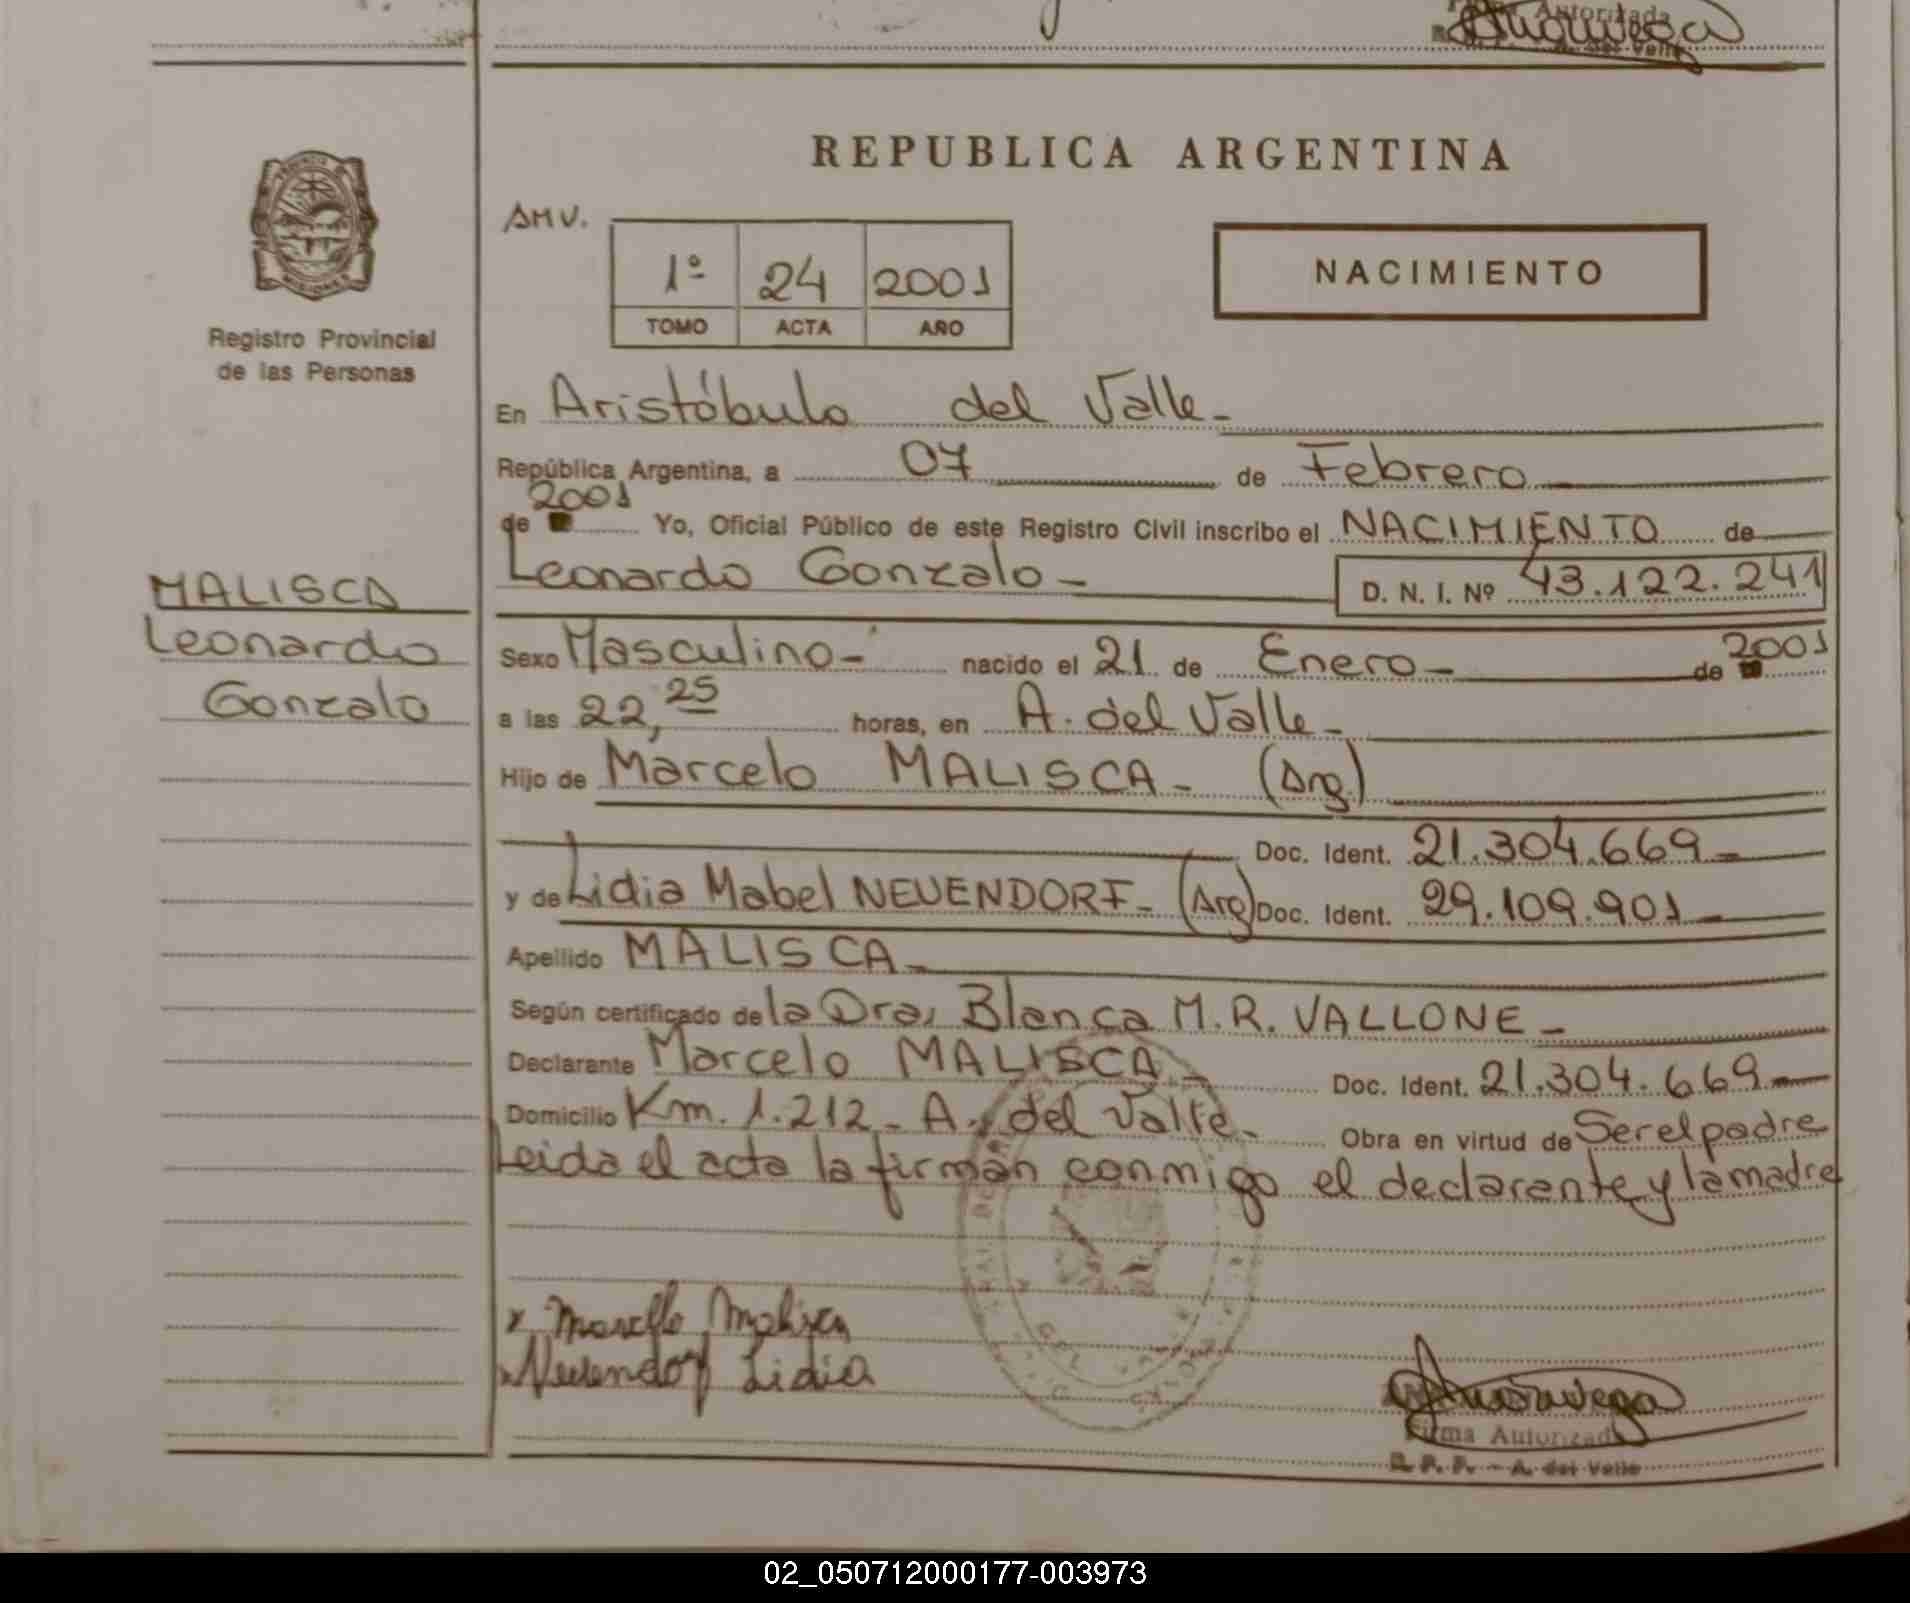 Autorizada
REPUBLICA ARGENTINA
AMV.
1º 24 2001
TOMO ACTA AÑO
NACIMIENTO
Registro Provincial
de las Personas
En Aristóbulo del Valle-
República Argentina, a 07 de Febrero
de 2001 Yo, Oficial Público de este Registro Civil inscribo el NACIMIENTO de
Leonardo Gonzalo- D. N. I. Nº 43.122.241
MALISCA
Leonardo
Gonzalo
Sexo Masculino- nacido el 21 de Enero- de 2001
a las 22,25 horas, en A. del Valle-
Hijo de Marcelo MALISCA- (Arg.)
Doc. Ident. 21.304.669-
y de Lidia Mabel NEUENDORF- (Arg) Doc. Ident. 29.109.901-
Apellido MALISCA-
Según certificado de la Dra. Blanca M.R. VALLONE-
Declarante Marcelo MALISCA- Doc. Ident. 21.304.669-
Domicilio Km. 1.212- A. del Valle- Obra en virtud de Ser el padre
Leida el acta la firman conmigo el declarante y la madre
x Marcelo Malisca
x Neuendorf Lidia
Firma Autorizada
R. P. P. - A. del Valle
02_050712000177-003973